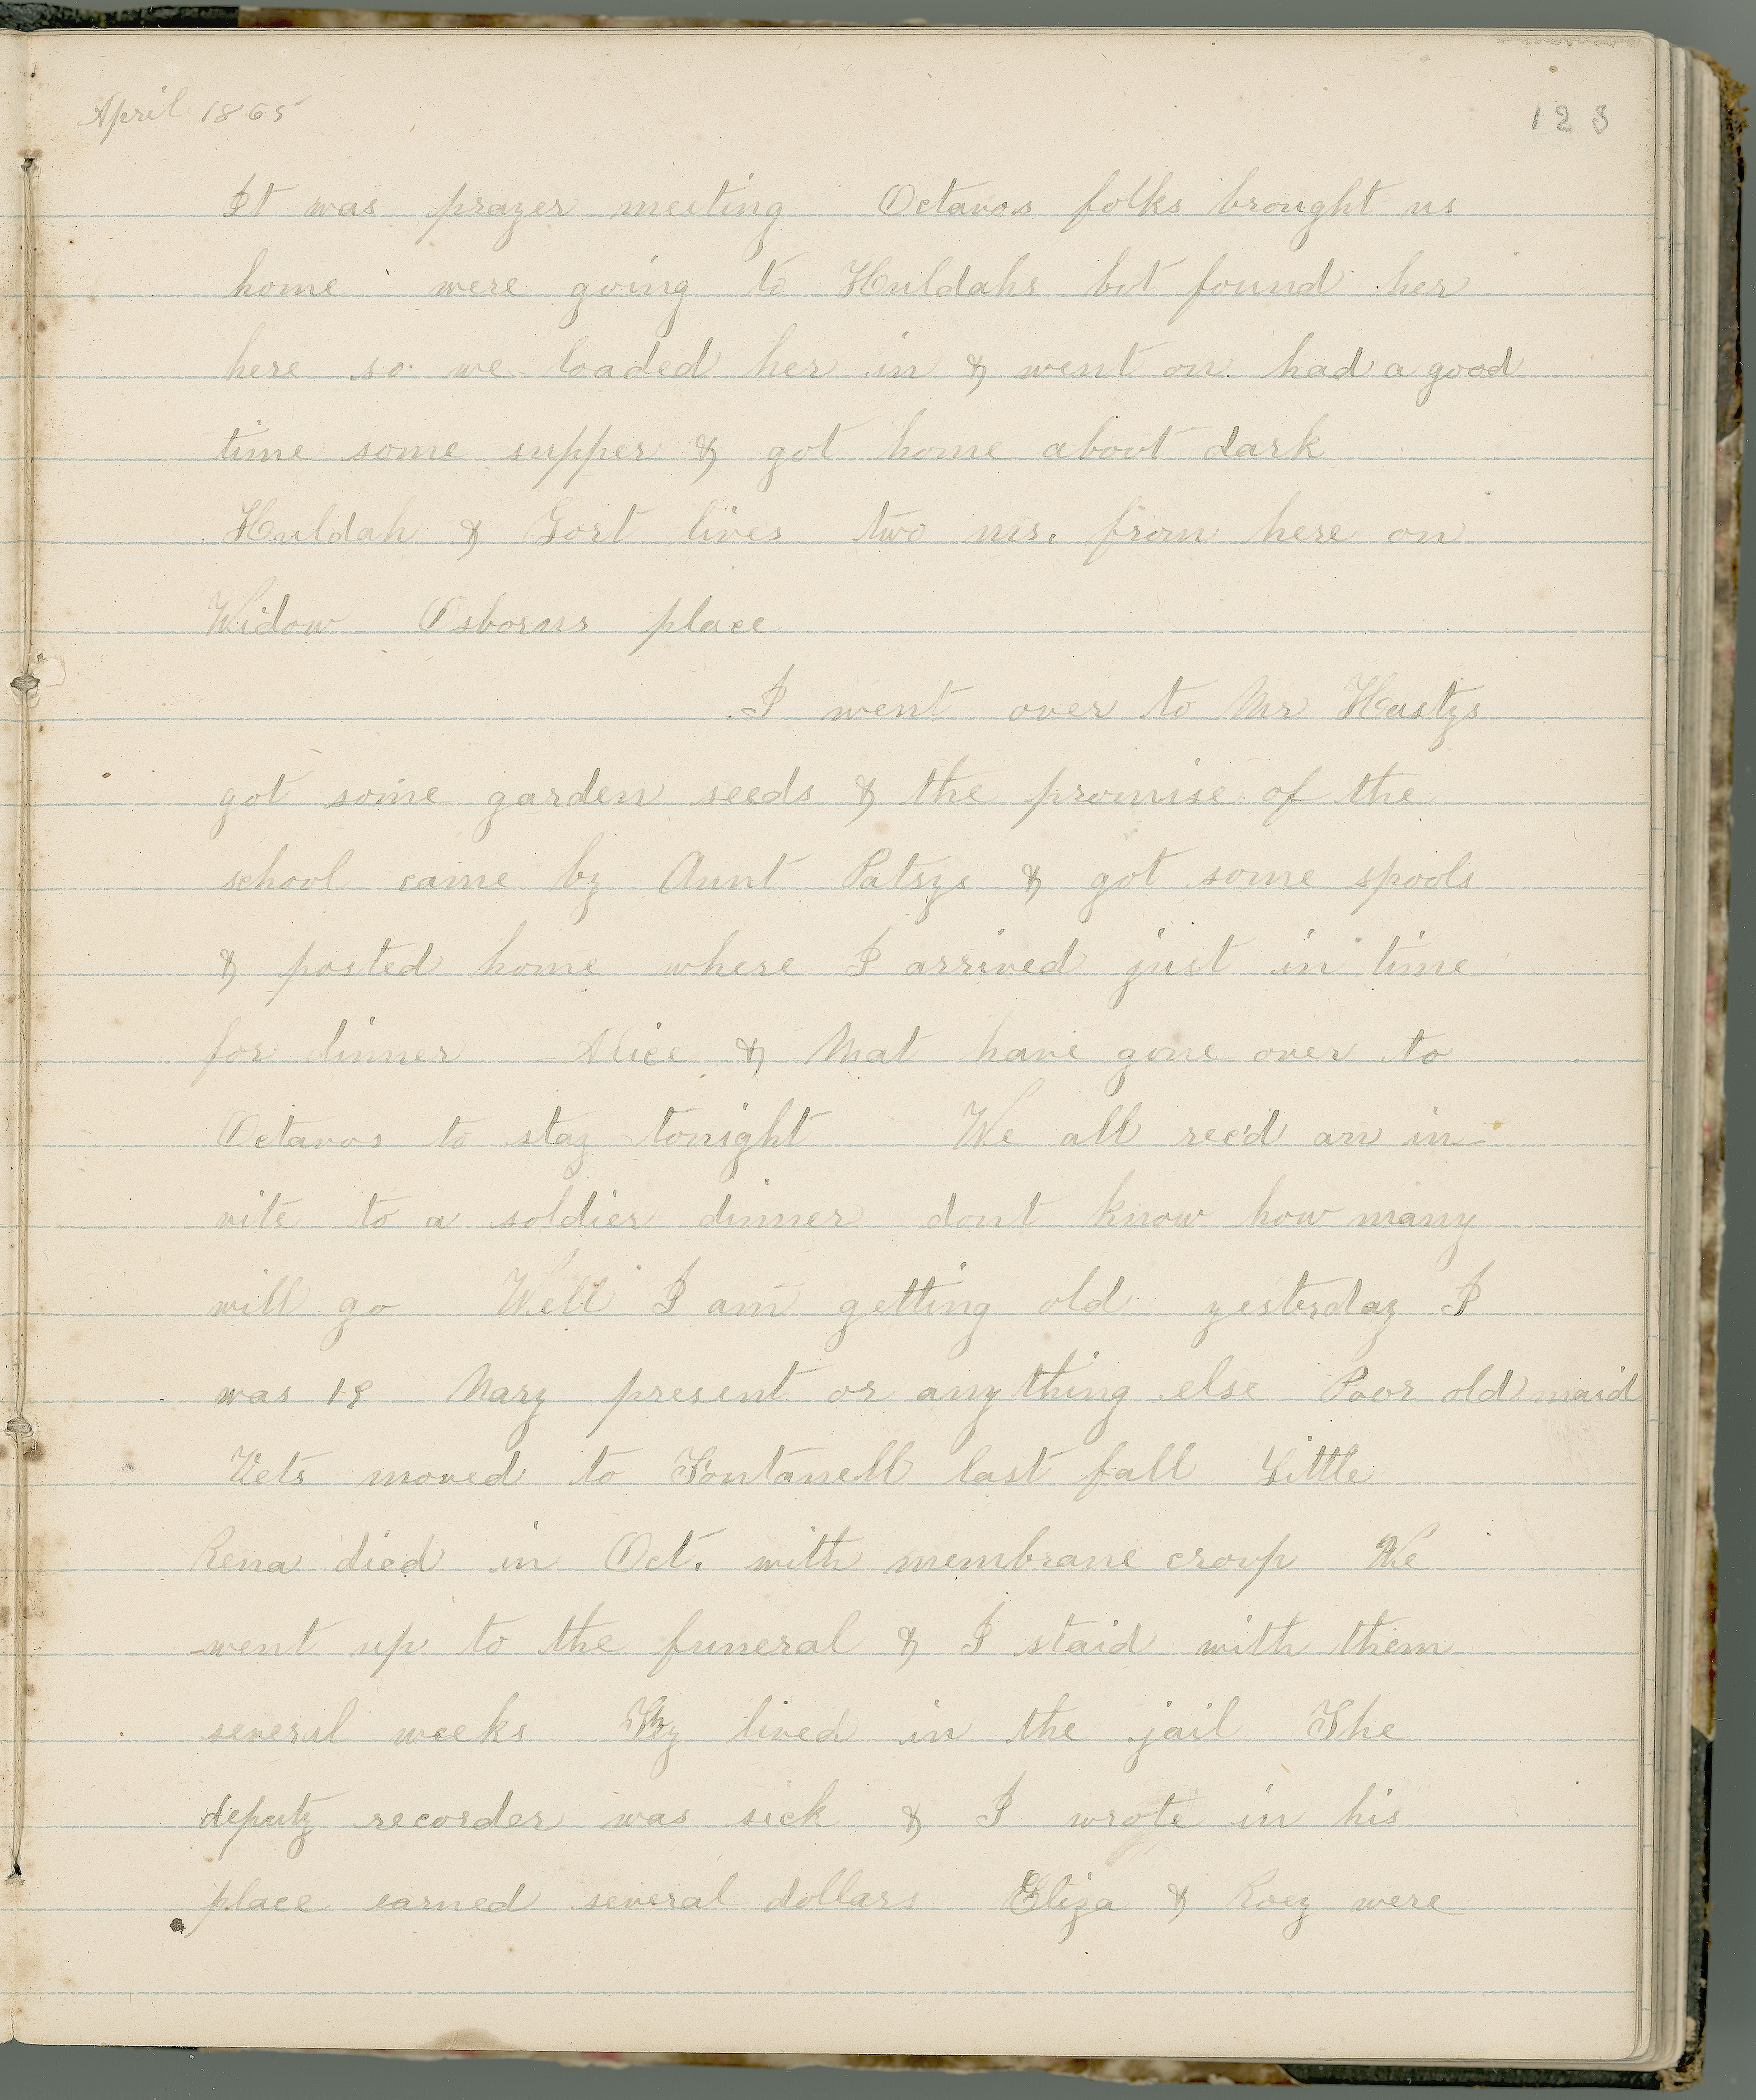 April 1865
123
It was prayer meeting Octavos folks brought us
home were going to Huldahs but found her
here so we loaded her in & went on had a good
time some supper & got home about dark
Huldah & Gort lives two ms. from here on
Widow Osborns place
I went over to Mr Hastys
got some garden seeds & the promise of the
school came by Aunt Patsys & got some spools
& posted home where I arrived just in time
for dinner Alice & Mat have gone over to
Octavos to stay tonight We all rec'd an in-
vite to a soldier dinner dont know how many
will go Well I am getting old yesterday I
was 18 Nary present or anything else Poor old maid
Vets moved to Fontanell last fall Little
Rena died in Oct. with membrane croup We
went up to the funeral & I staid with them
several weeks They lived in the jail The
deputy recorder was sick & I wrote in his
place earned several dollars Eliza & Roey were